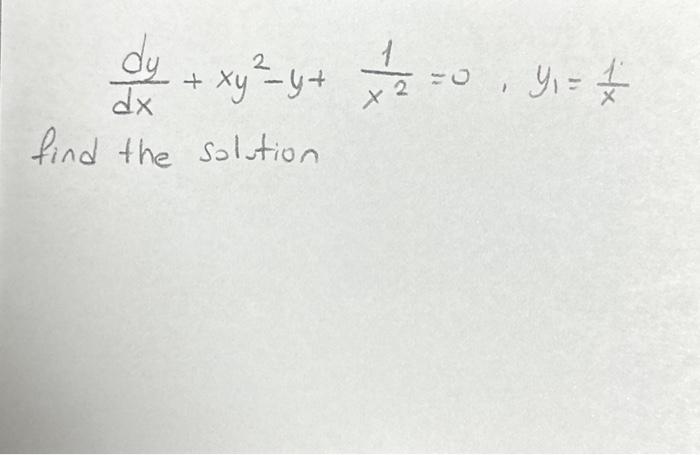 dy/dx + xy² - y + 1/x² = 0 , y₁ = 1/x
find the solution